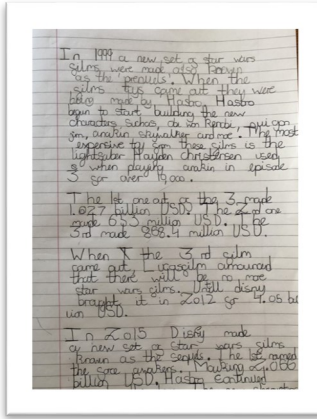 In 1999 a new set a star wars
films were made also known
as the 'prequils'. When the
films toys came out they were
being made by Hasbro Hasbro
began to start building the new
characters suchas obi Wan Kenobi, qui gon
jin, anakin skywalker and more. The most
expensive toy from these films is the
lightsaber Hayden christensen used
when playing anakin in episode
3 for over 10,000.
The 1st one out of the 3 made
1.027 billion USD. The 2nd one
made 653 million USD. The
3rd made 868.4 million USD.
When the 3rd film
came out Lucasfilm announced
that there will be no more
star wars films. Untill disny
brought it in 2012 for 4.05 bil
lion USD.
In 2015 Disny made
a new set of star wars films
known as the sequels. The 1st named
the force awakens. Making 2.066
billion USD, Hasbro continued